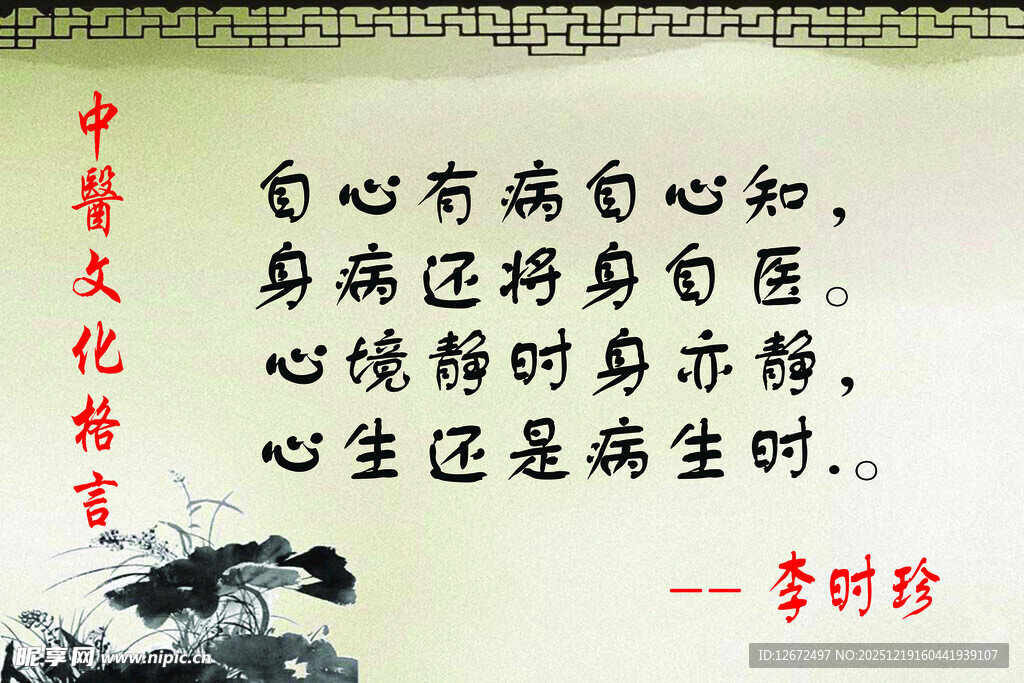 中醫文化格言
自心有病自心知，
身病还将身自医。
心境静时身亦静，
心生还是病生时.。
-- 李时珍
昵享网 www.nipic.cn
ID:12672497 NO:20251219160441939107